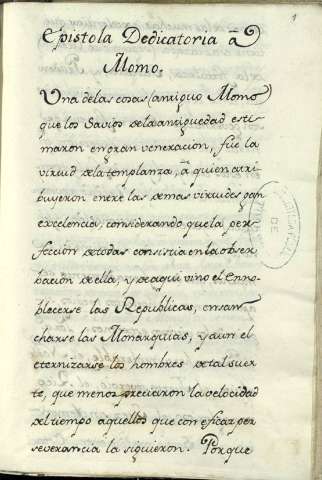 1
Epistola Dedicatoria â
Momo.
Una delas cosas (antiguo Momo)
que los Savios dela antiguedad esti-
maron en gran veneracion, fué la
virtud dela templanza, â quien atri-
buyeron entre las demas virtudes gan
excelencia, considerando que la per-
feccion de todas consistia en la obser-
bacion de ella, y de aqui vino el enno-
blecerse las Republicas, ensan-
charse las Monarquias, y aun el
eternizarse los hombres de tal suer-
te, que menospreciaron la velocidad
del tiempo aquellos que con eficaz per-
severancia la siguieron. Porque